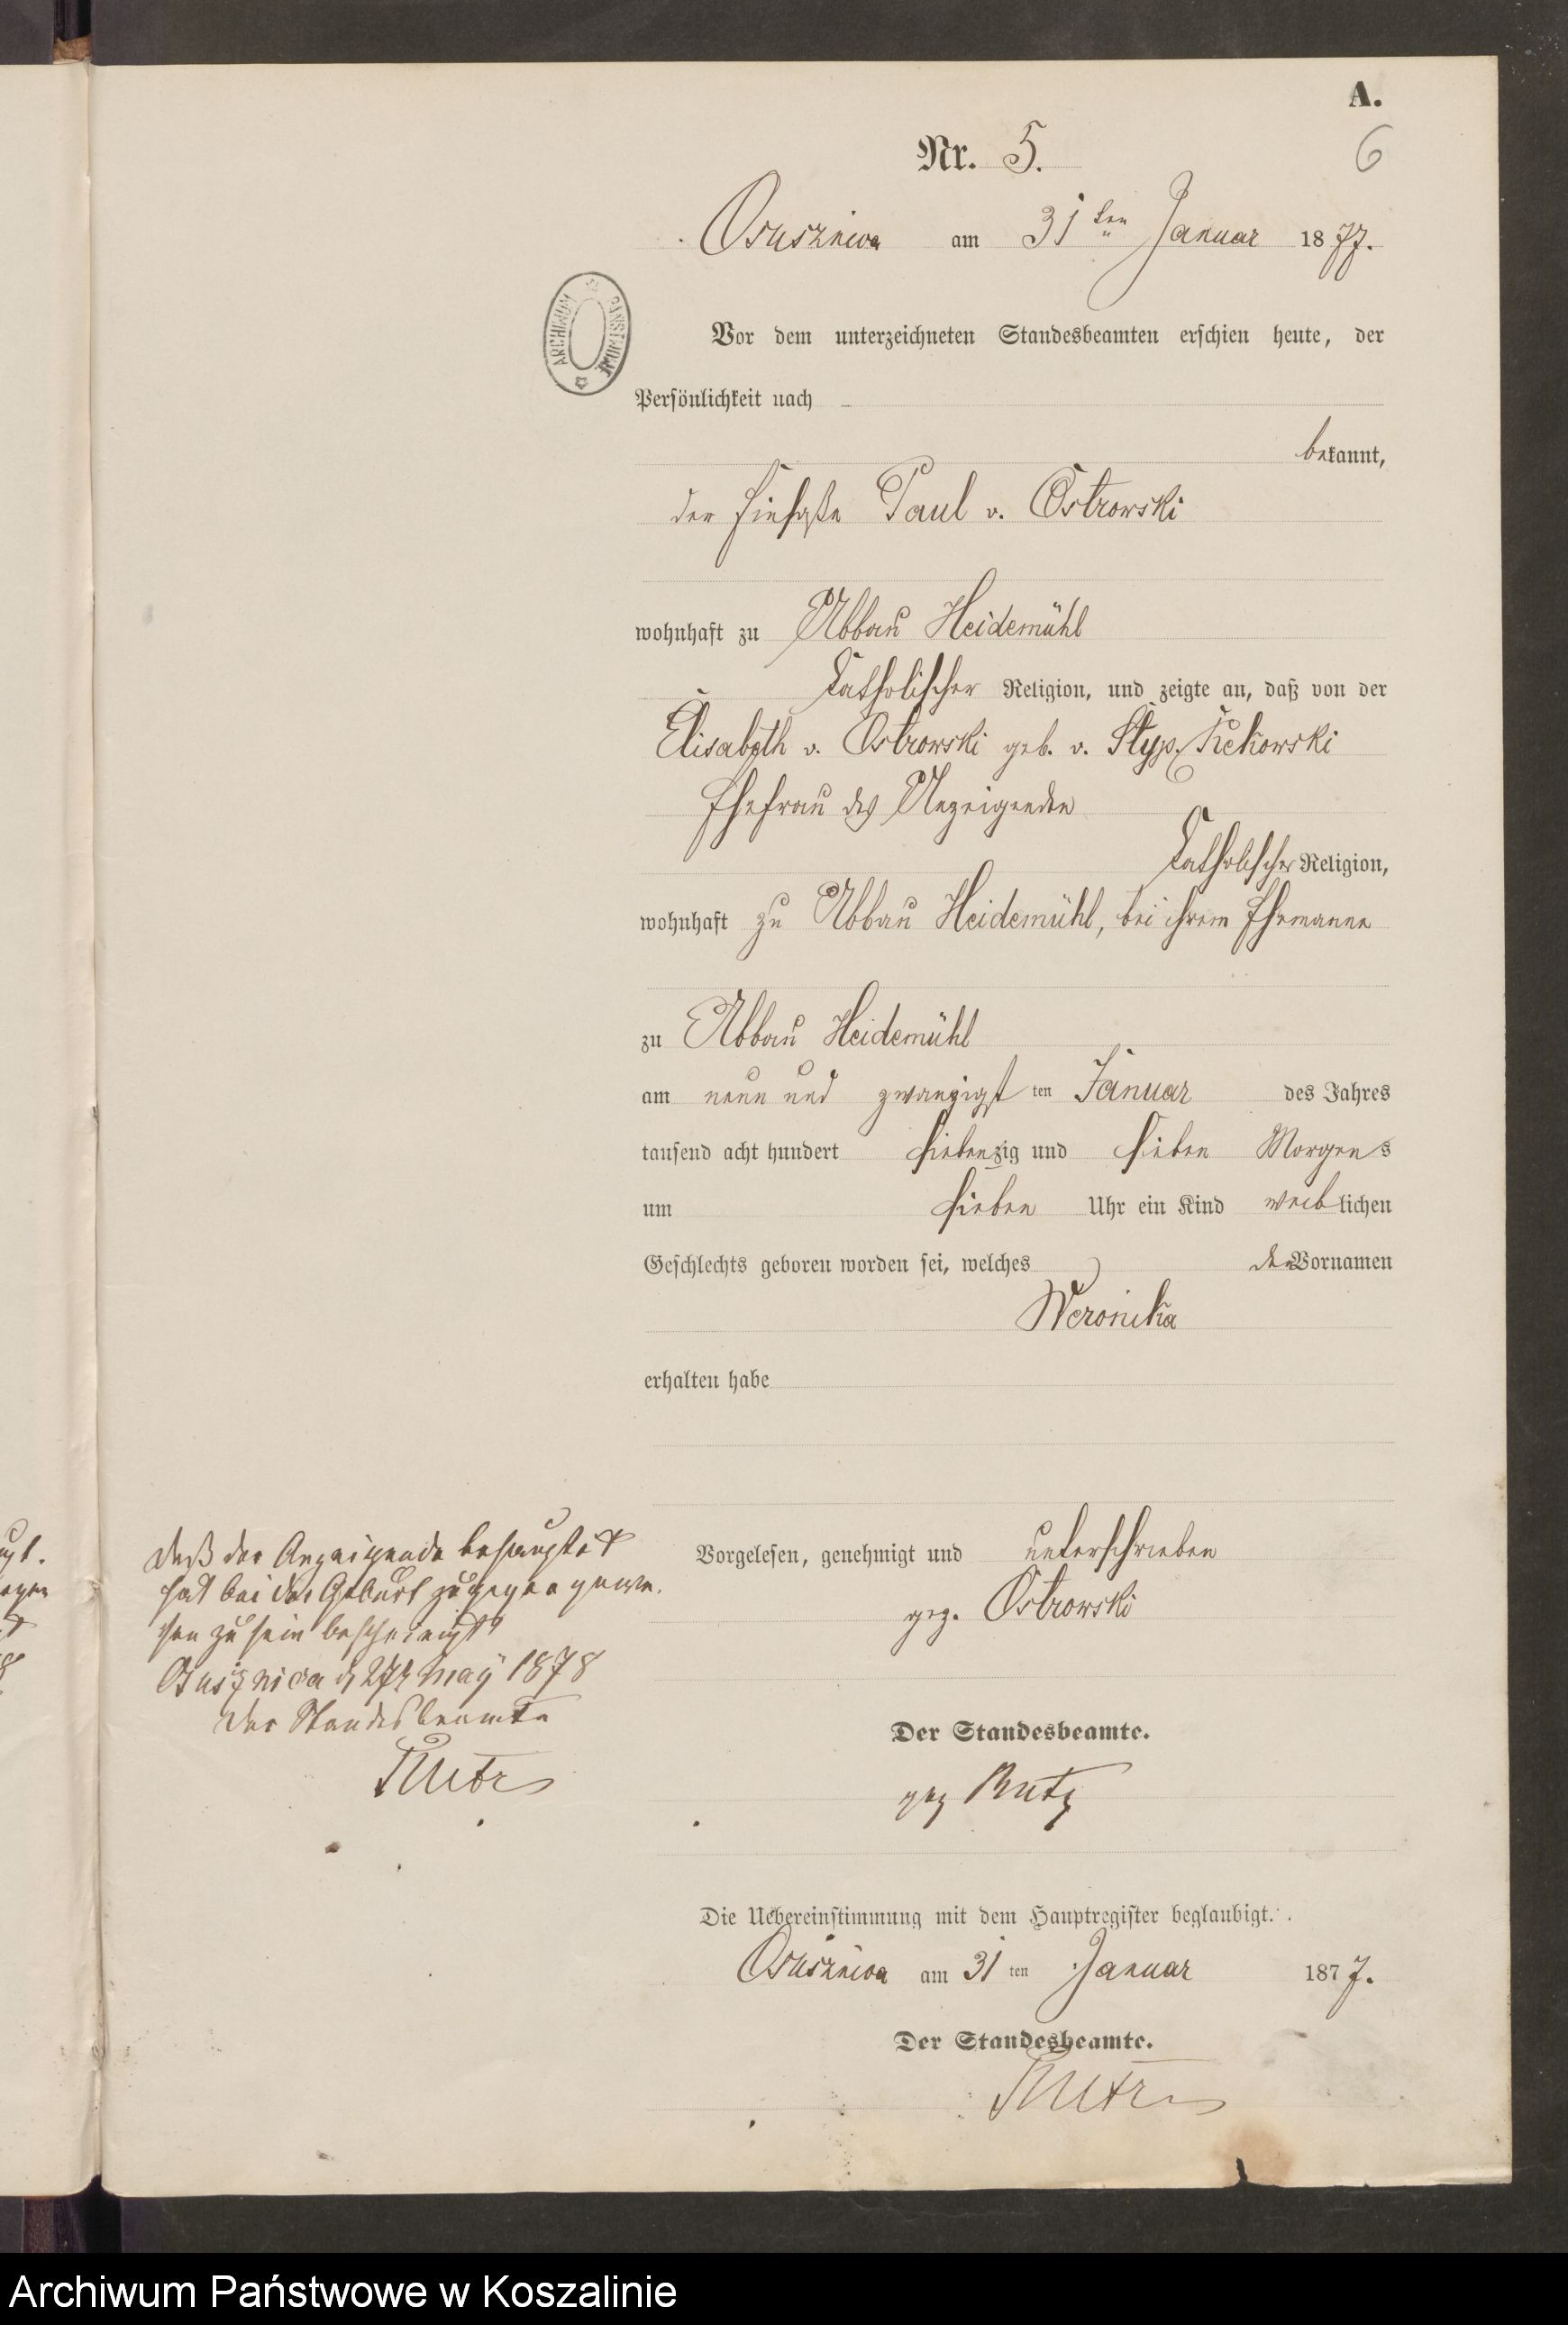 A.
Nr. 5.
6
Osusznica am 31ten Januar 1877.
ARCHIWUM PAŃSTWOWE
Vor dem unterzeichneten Standesbeamten erschien heute, der
Persönlichkeit nach –
bekannt,
der Einsaße Paul v. Ostrowski
wohnhaft zu Abbau Heidemühl
Catholischer Religion, und zeigte an, daß von der
Elisabeth v. Ostrowski geb. v. Styp. Rekowski
Ehefrau des Anzeigenden
Catholischer Religion,
wohnhaft zu Abbau Heidemühl, bei ihrem Ehemanne
zu Abbau Heidemühl
am neun und zwanzigst ten Januar des Jahres
tausend acht hundert siebenzig und sieben Morgens
um sieben Uhr ein Kind weiblichen
Geschlechts geboren worden sei, welches den Vornamen
Weronika
erhalten habe
Vorgelesen, genehmigt und unterschrieben
gez. Ostrowski
Der Standesbeamte.
gez
Die Uebereinstimmung mit dem Hauptregister beglaubigt.
Osusznica am 31 ten Januar 1877.
Der Standesbeamte.
Daß der Anzeigende behauptet
hat bei der Geburt zugegen gewe-
sen zu sein bescheinigt
Osusznica d 27t May 1878
Der Standesbeamte
Archiwum Państwowe w Koszalinie